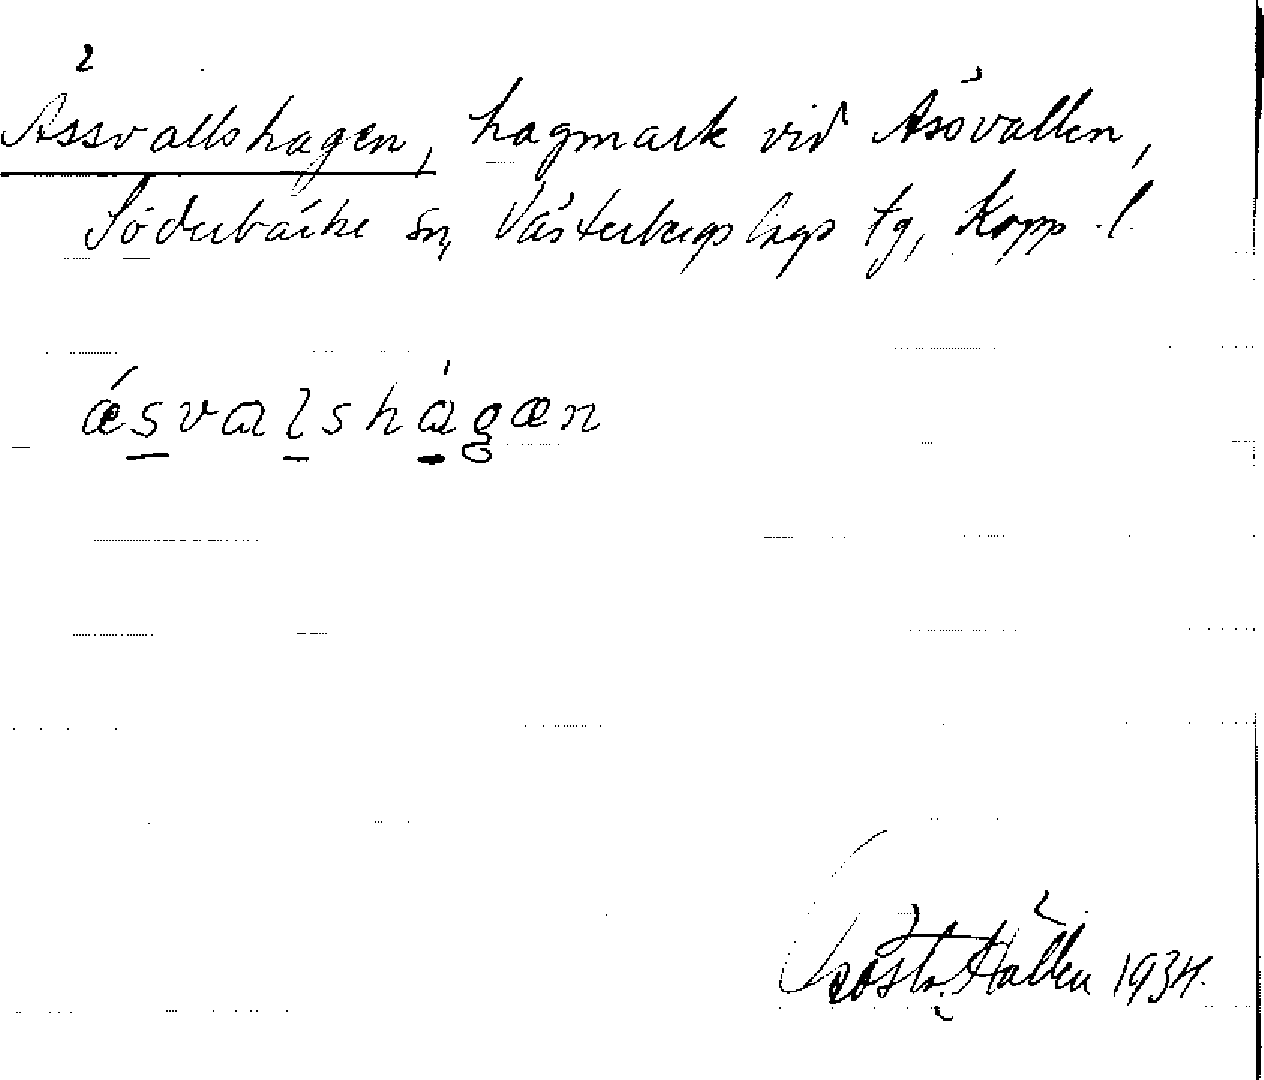 Ässvallshagen, hagmark vid Ässvallen,
Söderbärke sn, Västerbergslags tg, Kopp. l.
ǽsvalshágæn
Gösta Hallén 1934.